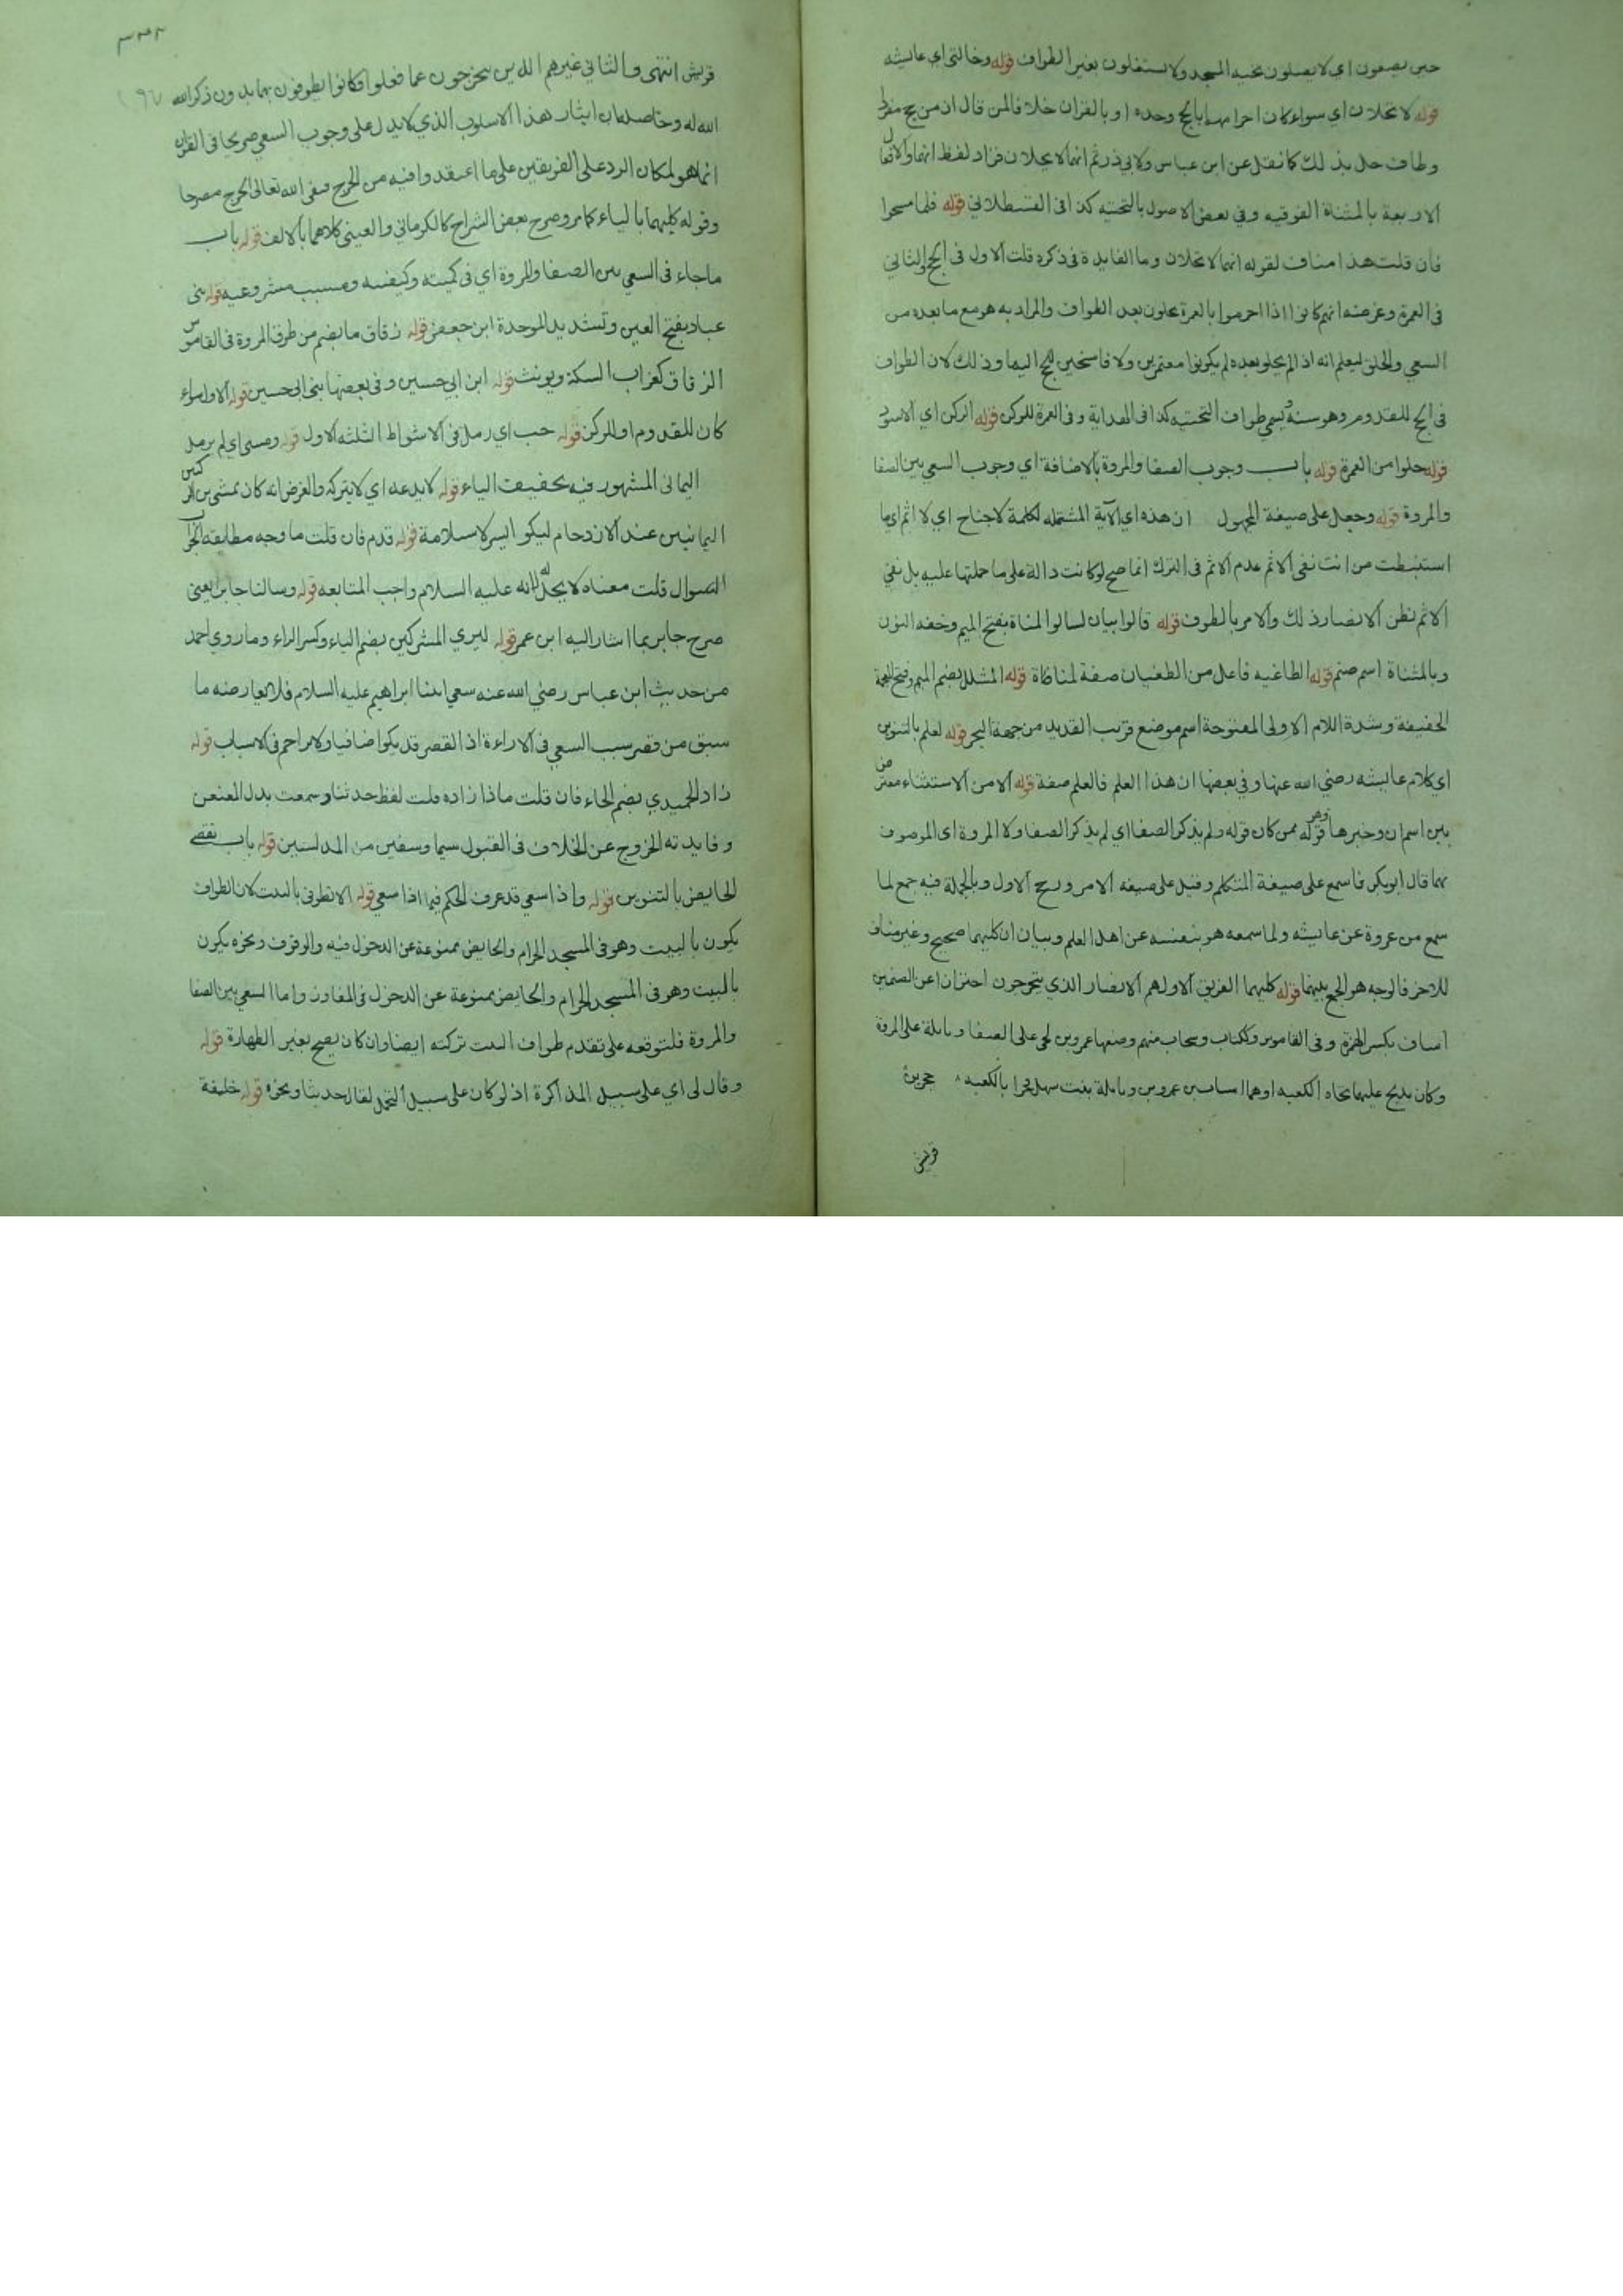 حين يصعون اي لا يصلون تحية المسجد ولا يستغلون بغير الطواف قوله وخالتي اي عايشه
قوله لا تحلان اي سواء كان احرامهما بالحج وحده او بالقران خلافا لمن قال ان من حج مفردا
وطاف حل بذلك كما نقل عن ابن عباس ولابي ذر ثم انهما لا يحلان فزاد لفظ انهما والافعال
الاربعة بالمثناة الفوقيه وفي بعض الاصول بالتحتيه كذا في القسطلاني قوله فلما مسحوا
فان قلت هذا مناف لقوله انهما لا تحلان وما الفايدة في ذكره قلت الاول في الحج والثاني
في العمرة وغرضه انهم كانوا اذا احرموا بالعمرة يحلون بعد الطواف والمراد به هو مع ما بعده من
السعي والحلق ليعلم انه اذا لم يحلو بعده لم يكونوا معتمرين ولا فاسخين للحج اليها وذلك لان الطواف
في الحج للقدوم وهو سنة ويسمي طواف التحتيه كذا في الهداية وفي العمرة للركن قوله الركن اي الاسود
قوله حلوا من العمرة قوله باب وجوب الصفا والمروة بالاضافة اي وجوب السعي بين الصفا
والمروة قوله وجعل على صيغة المجهول ان هذه اي الآية المشتمله لكلمة لاجناح اي لا اثم اي ما
استنبطت من انت نفي الاثم عدم الاثم في الترك انما صح لو كانت دالة على ما حملتها عليه بل نفي
الاثم نظن الانصار ذلك والامر بالطوف قوله قالوا بيان لسالوا المناة بفتح الميم وخفه النون
وبالمثناة اسم صنم قوله الطاغيه فاعل من الطغيان صفة لمناة قوله المشلل بضم الميم وفتح المعجمة
الخفيفة وشدة اللام الاولى المفتوحة اسم موضع قريب القديد من جهة البحر قوله لعلم بالتنوين
اي كلام عايشه رضي الله عنها وفي بعضها ان هذا العلم فالعلم صفة قوله الا من الاستثناء معترض
بين اسم ان وخبرها وهو قوله ممن كان قوله ولم يذكر الصفا اي لم يذكر الصفا ولا المروة اي الموصوف
بهما قال ابو بكر فاسمع على صيغة المتكلم وقيل على صيغه الامر ورجح الاول وبالجملة فيه جمع لما
سمع من عروة عن عايشه ولما سمعه هو بنفسه عن اهل العلم وبيان ان كليهما صحيح وغير مناف
للاخر فالوجه هو الجمع بينهما قوله كليهما الفريق الاول هم الانصار الذي يتحرجون احترازا عن الصنمين
اساف بكسر الهمزة وفي القاموس وككتاب وسحاب صنم وضعها عمرو بن لحي على الصفا ونايلة على المروة
وكان يذبح عليهما تجاه الكعبه او هما اساف بن عمرو بن ونايلة بنت سهل فجرا بالكعبه حجرين
قريش
٣٣٢
قريش انتهى والثاني غيرهم الذين يتحرجون عما فعلوا فكانوا يطوفون بهما بدون ذكر الله
الله له وحاصله ان ايثار هذا الاسلوب الذي لا يدل على وجوب السعي صريحا في القران
انما هو لمكان الرد على الفريقين على ما اعتقدوا فيه من الحرج فنفى الله تعالى الحرج مصرحا
وقوله كليهما بالياء كما مر وصرح بعض الشراح كالكرماني والعيني كلاهما بالالف قوله باب
ما جاء في السعي بين الصفا والمروة اي في كميته وكيفيته وسبب مشروعيه قوله بني
عباد بفتح العين وتشديد الموحدة ابن جعفر قوله زقاق ما يضم من طرف المروة في القاموس
الزقاق كغراب السكة ويونث قوله ابن ابي حسين وفي بعضها بني ابي حسين قوله الاول سواء
كان للقدوم او للركن قوله خب اي رمل في الاشواط الثلثه الاول قوله ومشى اي لم يرمل
اليماني المشهور فيه تخفيف الياء قوله لا يدعه اي لا يتركه والغرض انه كان يمشي بين الركنين
اليمانيين عند الازدحام ليكو ايسر لاستلامه قوله قدم فان قلت ما وجه مطابقه الجواب
السوال قلت معناه لا يحل له لانه عليه السلام واجب المتابعه قوله وسالنا جابر يعني
صرح جابر بما اشار اليه ابن عمر قوله ليري المشركين بضم الياء وكسر الراء وما روي احمد
من حديث ابن عباس رضي الله عنه سعي ابينا ابراهيم عليه السلام فلا يعارضه ما
سبق من قصر سبب السعي في الاراءة اذ القصر قد يكوا ضافيا ولا مزاحم في الاسباب قوله
زاد الحميدي بضم الحاء فان قلت ماذا زاده قلت لفظ حدثنا وسمعت بدل المعنعن
وفايدته الخروج عن الخلاف في القبول سيما وسفين من المدلسين قوله باب تقضي
الحايض بالتنوين قوله واذا سعي قد عرف الحكم فيما اذا سعي قوله الا تطوفي بالبيت لان الطواف
يكون بالبيت وهو في المسجد الحرام والحايض ممنوعة عن الدخول فيه والوقوف ونحوه يكون
بالبيت وهو في المسجد الحرام والحايض ممنوعة عن الدخول في المفاوز واما السعي بين الصفا
والمروة فلتوقعه على تقدم طواف البيت تركته ايضا وان كان يصح بغير الطهارة قوله
وقال لي اي على سبيل المذاكرة اذ لو كان على سبيل التحمل لقال حديثا ونحوه قوله خليفة